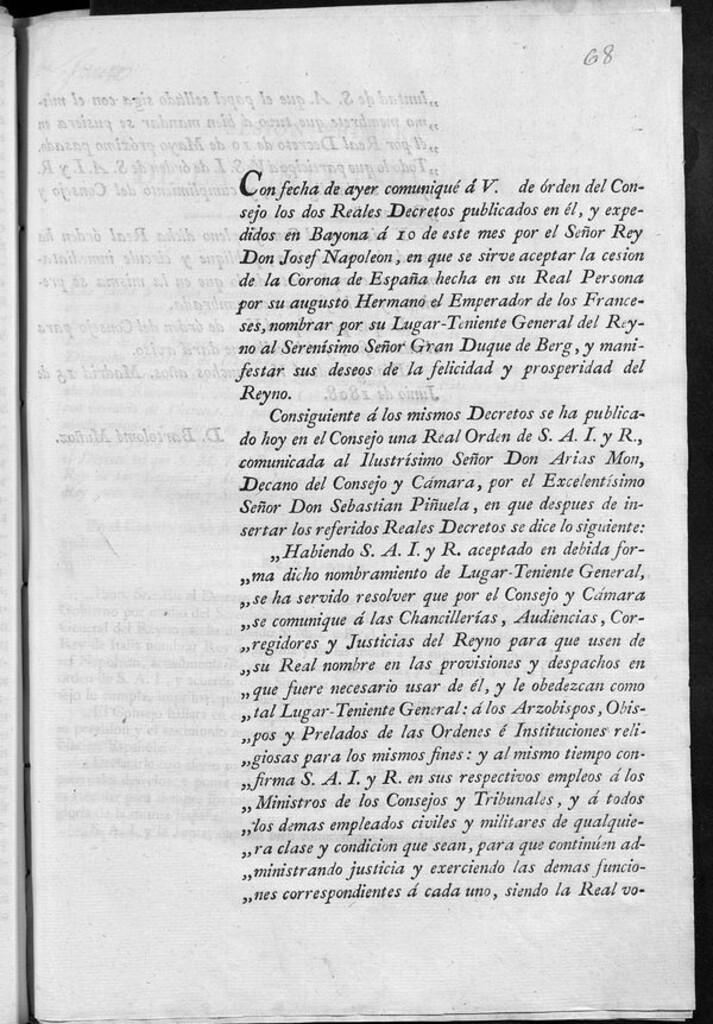 68
Con fecha de ayer comuniqué á V. de órden del Con-
sejo los dos Reales Decretos publicados en él, y expe-
didos en Bayona á 10 de este mes por el Señor Rey
Don Josef Napoleon, en que se sirve aceptar la cesion
de la Corona de España hecha en su Real Persona
por su augusto Hermano el Emperador de los France-
ses, nombrar por su Lugar-Teniente General del Rey-
no al Serenísimo Señor Gran Duque de Berg, y mani-
festar sus deseos de la felicidad y prosperidad del
Reyno.
Consiguiente á los mismos Decretos se ha publica-
do hoy en el Consejo una Real Orden de S. A. I. y R.,
comunicada al Ilustrísimo Señor Don Arias Mon,
Decano del Consejo y Cámara, por el Excelentísimo
Señor Don Sebastian Piñuela, en que despues de in-
sertar los referidos Reales Decretos se dice lo siguiente:
„Habiendo S. A. I. y R. aceptado en debida for-
„ma dicho nombramiento de Lugar-Teniente General,
„se ha servido resolver que por el Consejo y Cámara
„se comunique á las Chancillerías, Audiencias, Cor-
„regidores y Justicias del Reyno para que usen de
„su Real nombre en las provisiones y despachos en
„que fuere necesario usar de él, y le obedezcan como
„tal Lugar-Teniente General: á los Arzobispos, Obis-
„pos y Prelados de las Ordenes é Instituciones reli-
„giosas para los mismos fines: y al mismo tiempo con-
„firma S. A. I. y R. en sus respectivos empleos á los
„Ministros de los Consejos y Tribunales, y á todos
„los demas empleados civiles y militares de qualquie-
„ra clase y condicion que sean, para que continúen ad-
„ministrando justicia y exerciendo las demas funcio-
„nes correspondientes á cada uno, siendo la Real vo-